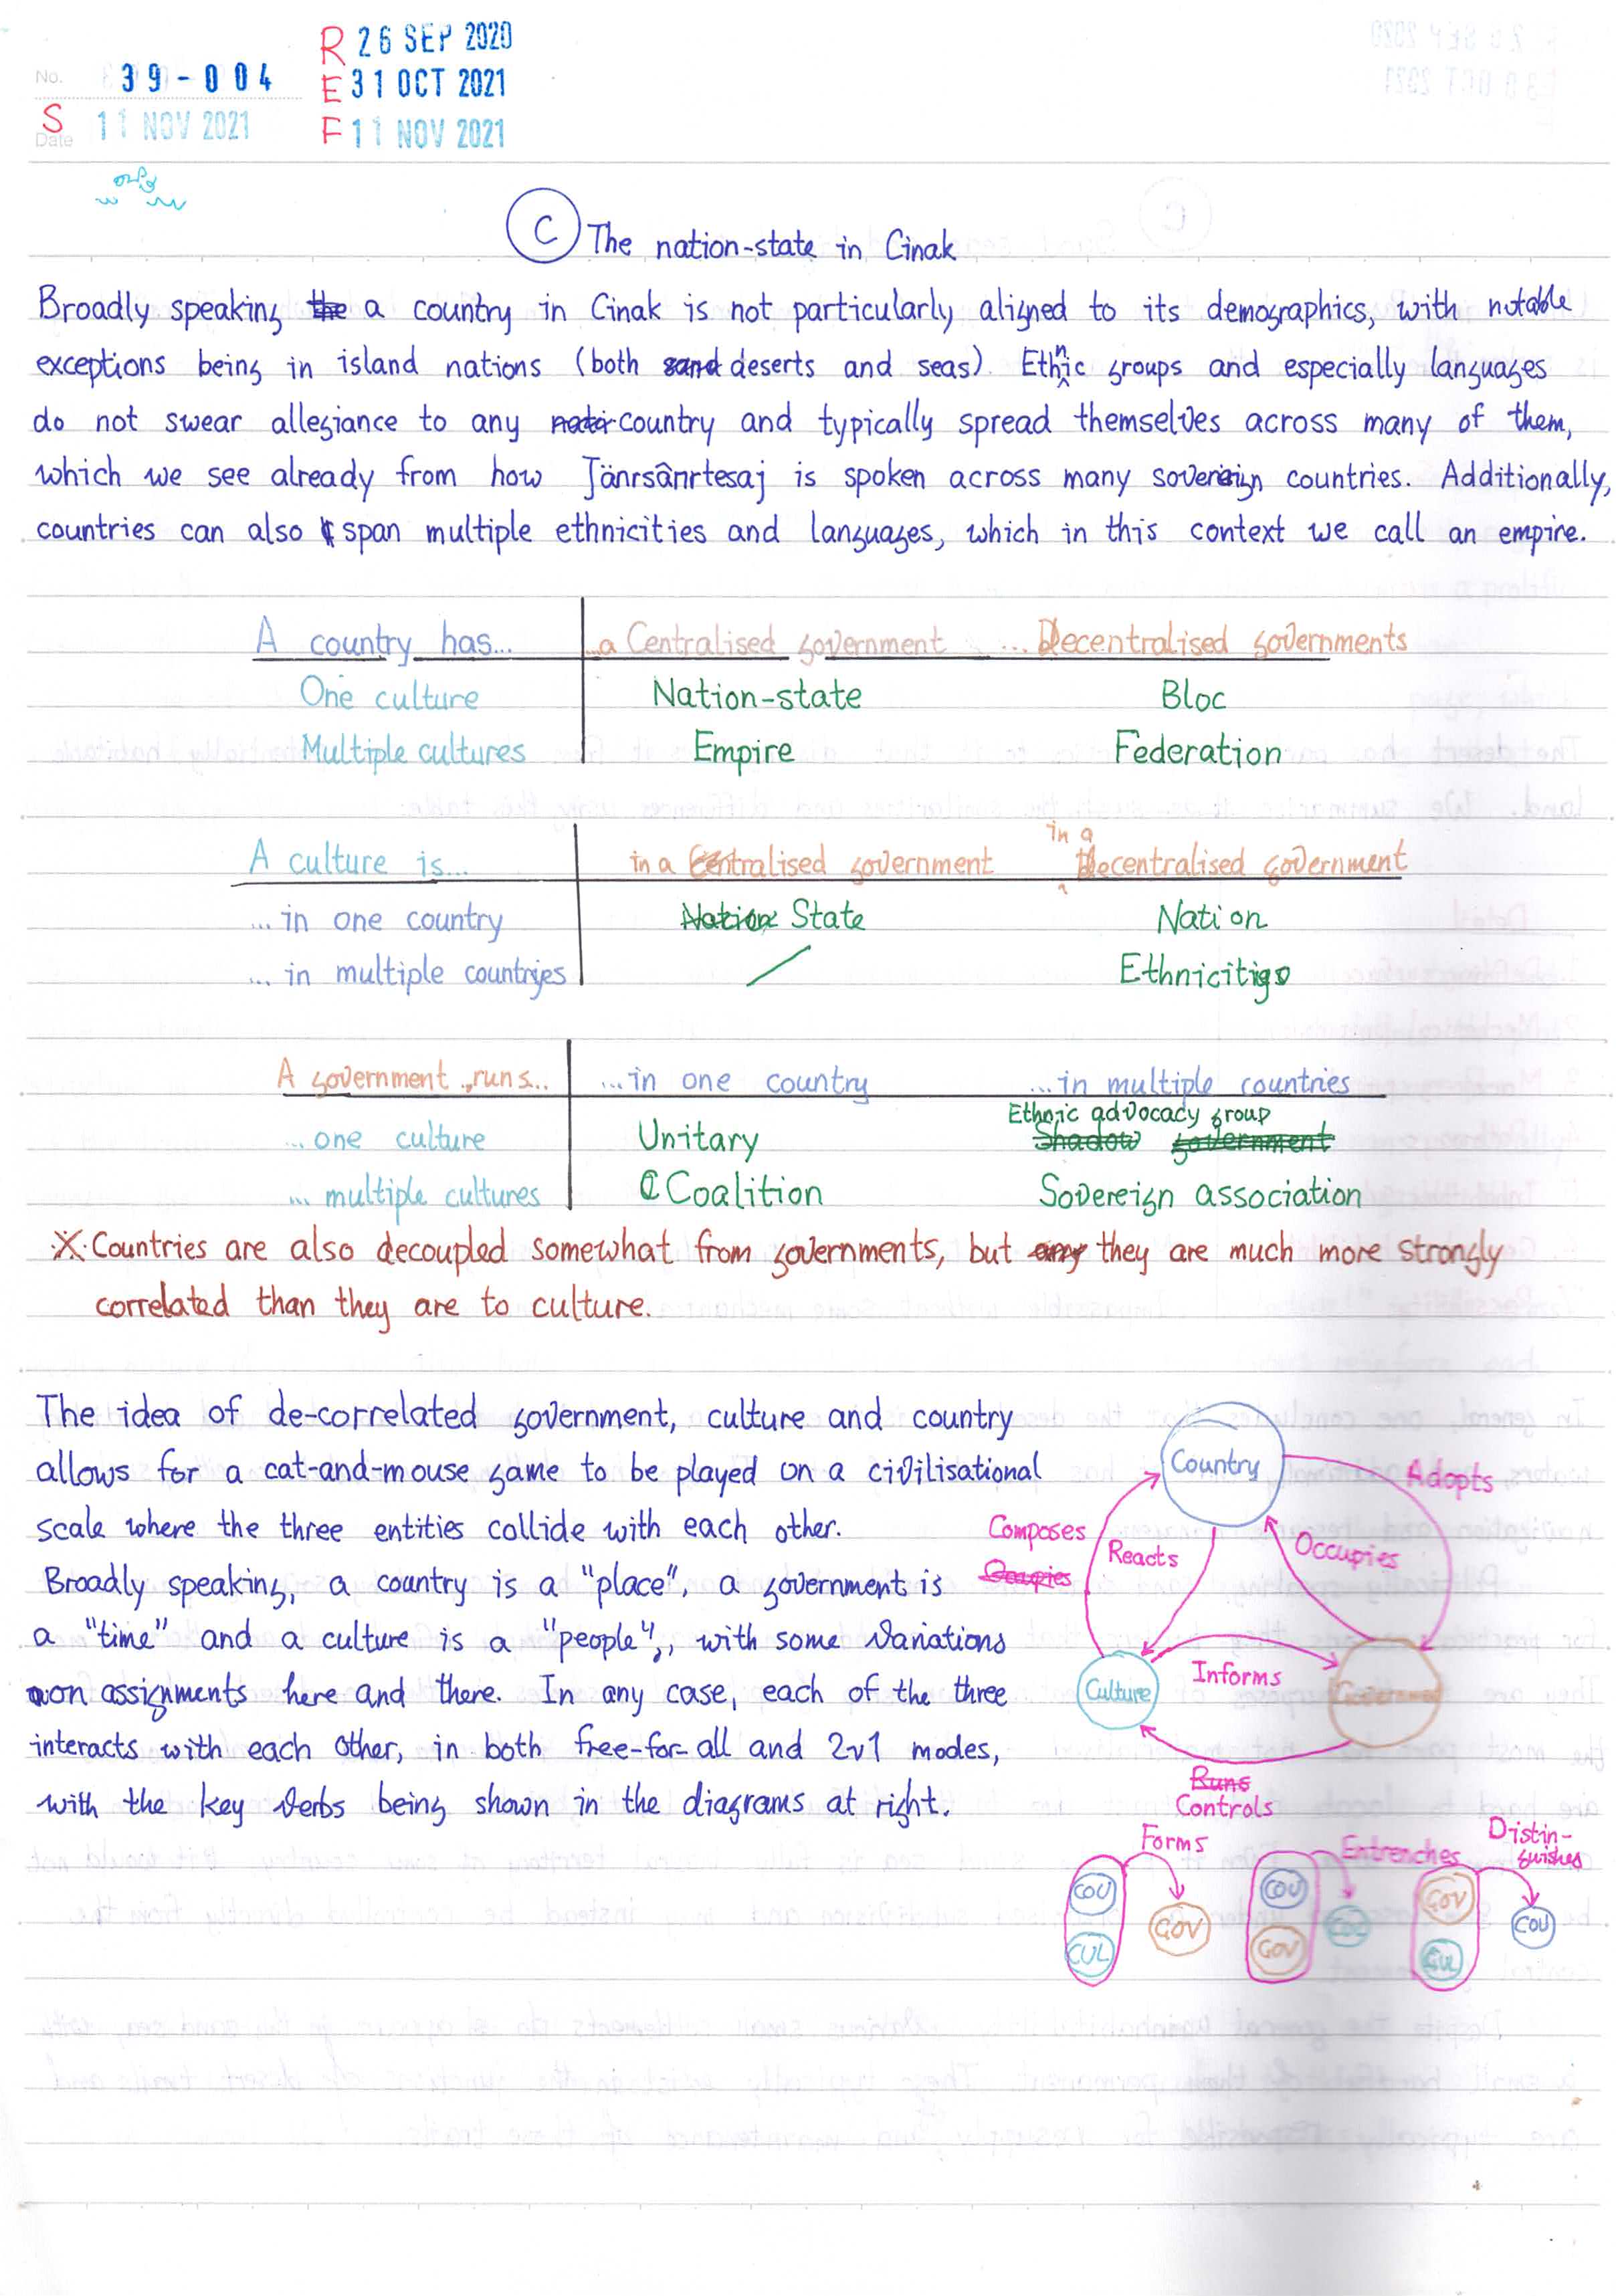 R 26 SEP 2020
No. 39-004
E 31 OCT 2021
S Date 11 NOV 2021
F 11 NOV 2021
C The nation-state in Cinak
Broadly speaking the a country in Cinak is not particularly aligned to its demographics, with notable
exceptions being in island nations (both sand deserts and seas). Ethnic groups and especially languages
do not swear allegiance to any country and typically spread themselves across many of them,
which we see already from how Jänrsânrtesaj is spoken across many sovereign countries. Additionally,
countries can also span multiple ethnicities and languages, which in this context we call an empire.
A country has... ...a Centralised government ... Decentralised governments
One culture Nation-state Bloc
Multiple cultures Empire Federation
A culture is... in a Centralised government in a Decentralised government
... in one country Nation State Nation
... in multiple countries / Ethnicities
A government runs... ...in one country ...in multiple countries
Ethnic advocacy group
... one culture Unitary Shadow government
... multiple cultures Coalition Sovereign association
※ Countries are also decoupled somewhat from governments, but any they are much more strongly
correlated than they are to culture.
The idea of de-correlated government, culture and country
allows for a cat-and-mouse game to be played on a civilisational
scale where the three entities collide with each other.
Broadly speaking, a country is a "place", a government is
a "time" and a culture is a "people", with some variations
on assignments here and there. In any case, each of the three
interacts with each other, in both free-for-all and 2v1 modes,
with the key verbs being shown in the diagrams at right.
Country
Adopts
Composes
Occupies
Reacts
Occupies
Culture
Informs
Government
Runs
Controls
Forms
COU
CUL
GOV
Entrenches
COU
GOV
CUL
Distin-
guishes
GOV
CUL
COU